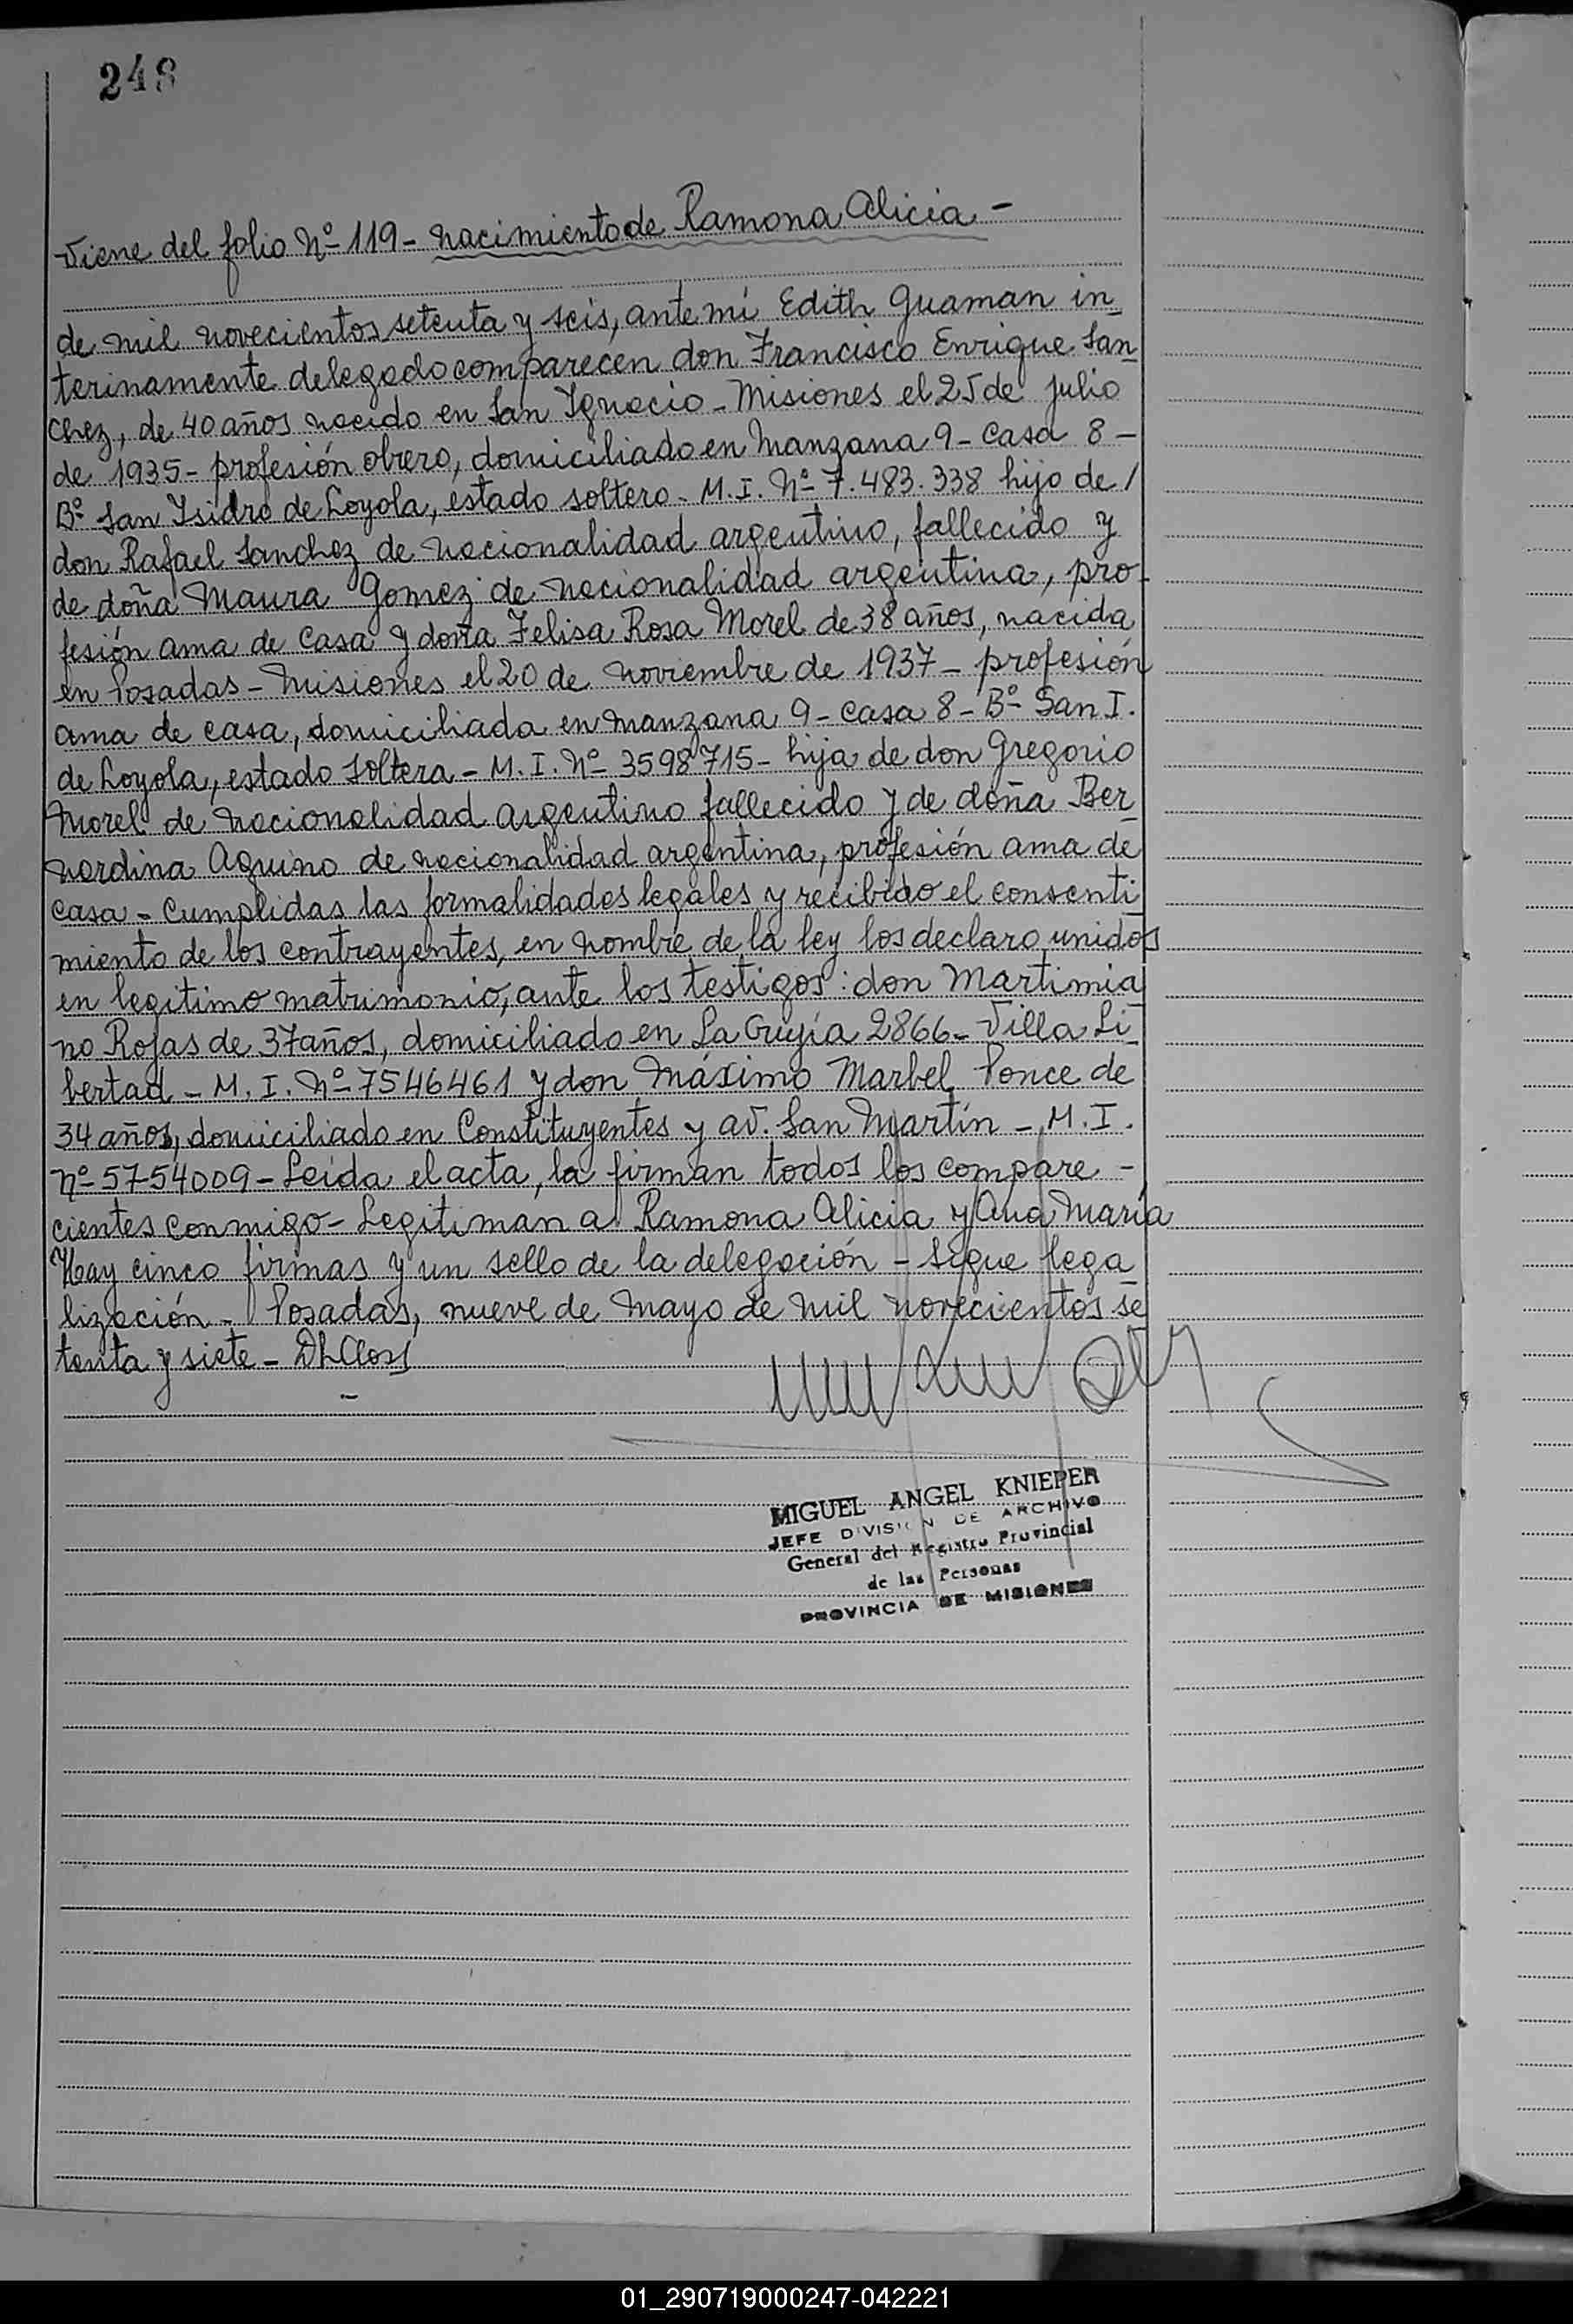 248
Viene del folio Nº 119 - nacimiento de Ramona Alicia -
de mil novecientos setenta y seis, ante mí Edith Guaman in
terinamente delegado comparecen don Francisco Enrique San
chez, de 40 años nacido en San Ignacio - Misiones el 25 de julio
de 1935 - profesión obrero, domiciliado en Manzana 9 - Casa 8 -
Bº San Isidro de Loyola, estado soltero - M. I. Nº 7.483.338 hijo de /
don Rafael Sanchez de nacionalidad argentino, fallecido y
de doña Maura Gomez de nacionalidad argentina, pro-
fesión ama de casa y doña Felisa Rosa Morel de 38 años, nacida
en Posadas - Misiones el 20 de noviembre de 1937 - profesión
ama de casa, domiciliada en Manzana 9 - Casa 8 - Bº San I.
de Loyola, estado soltera - M. I. Nº 3598715 - hija de don Gregorio
Morel de nacionalidad argentino fallecido y de doña Ber
nardina Aquino de nacionalidad argentina, profesión ama de
casa - Cumplidas las formalidades legales y recibido el consenti
miento de los contrayentes, en nombre de la ley los declaro unidos
en legitimo matrimonio, ante los testigos: don Martimia
no Rojas de 37 años, domiciliado en La 2866 - Villa Li
bertad - M. I. Nº 7546461 y don Máximo Marbel Ponce de
34 años, domiciliado en Constituyentes y av. San Martín - M. I.
Nº 5754009 - Leída el acta, la firman todos los compare -
cientes conmigo - Legitiman a Ramona Alicia y Ana María
Hay cinco firmas y un sello de la delegación - Sigue lega
lización - Posadas, nueve de Mayo de mil novecientos se
tenta y siete -
MIGUEL ANGEL KNIEPER
JEFE DIVISION DE ARCHIVO
General del Registro Provincial
de las Personas
PROVINCIA DE MISIONES
01_290719000247-042221